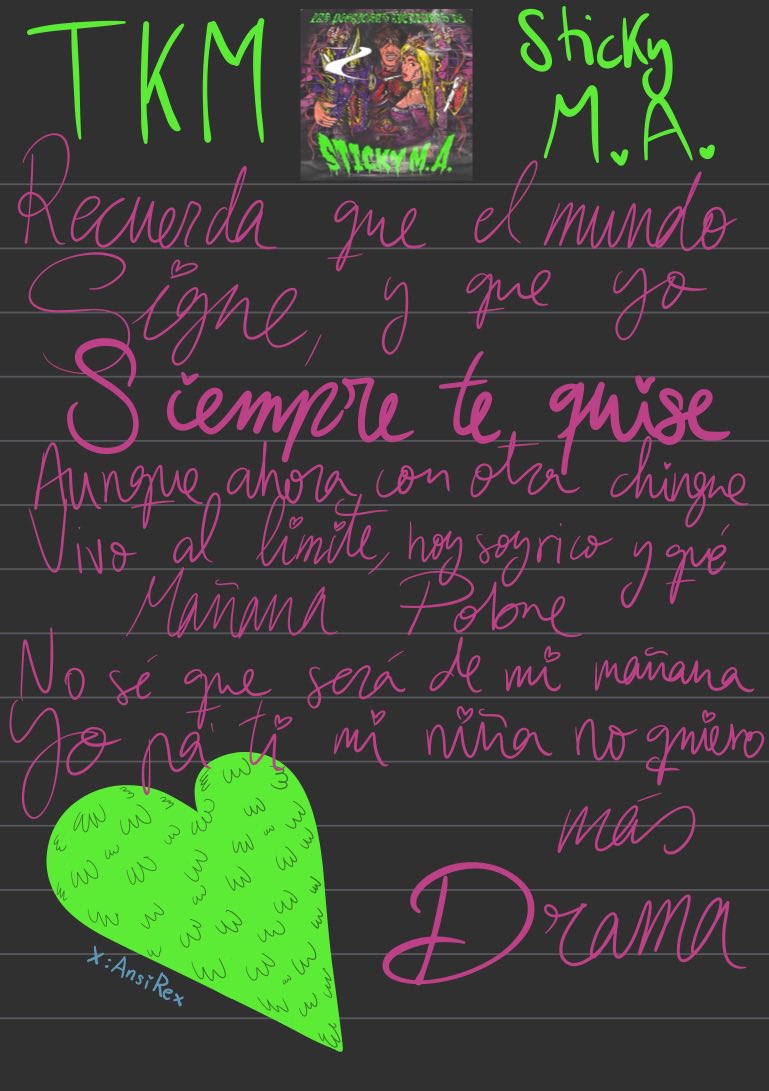 TKM
Sticky
M.A.
STICKY M.A.
Recuerda que el mundo
Sigue, y que yo
Siempre te quise
Aunque ahora con otra chingue
Vivo al límite, hoy soy rico y qué
Mañana Pobre
No sé que será de mi mañana
Yo pa' ti mi niña no quiero
más
Drama
X:AnsiRex